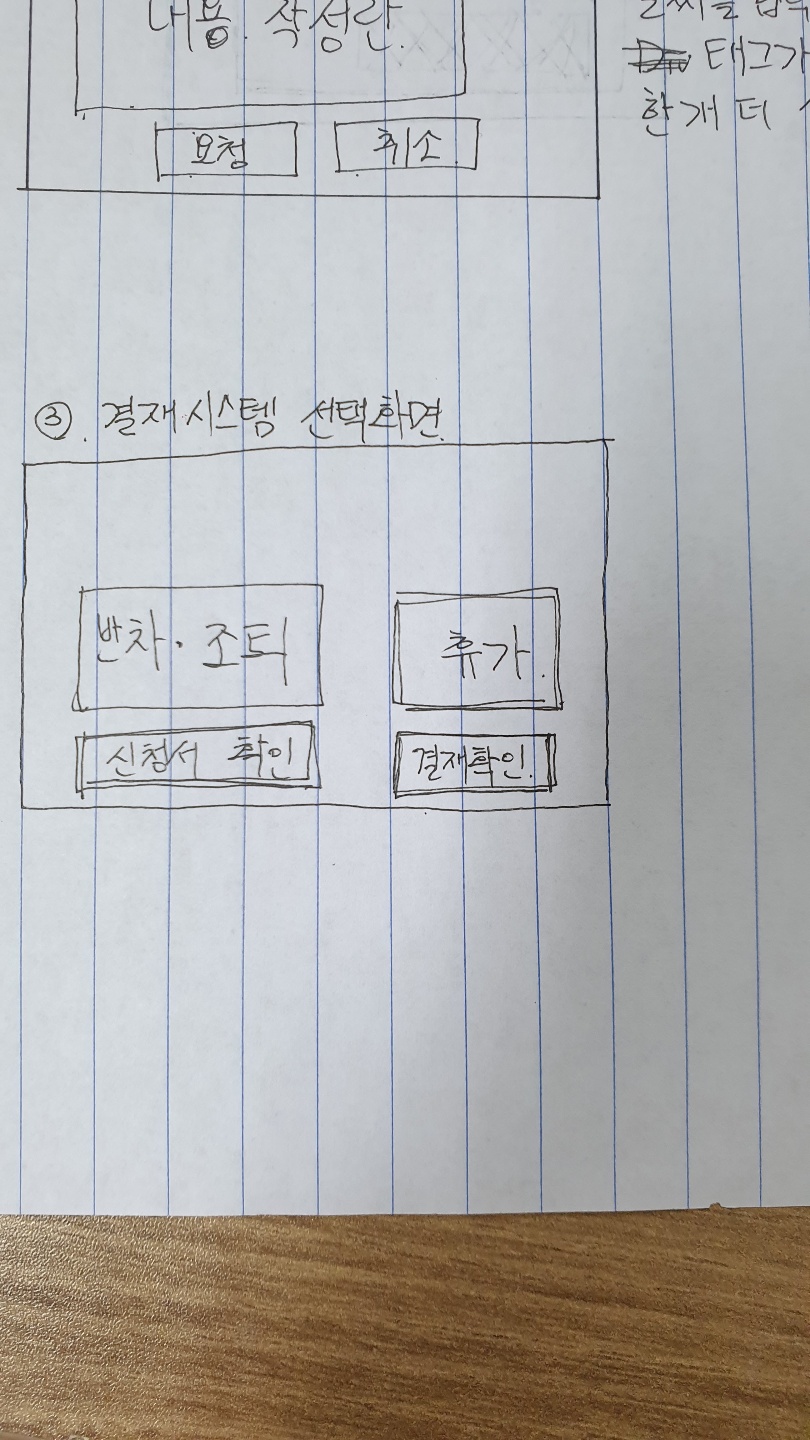 내용. 작성란.
태그가
한 개 더
요청
취소
③. 결재시스템 선택화면.
반차·조퇴
휴가.
신청서 확인
결재확인.